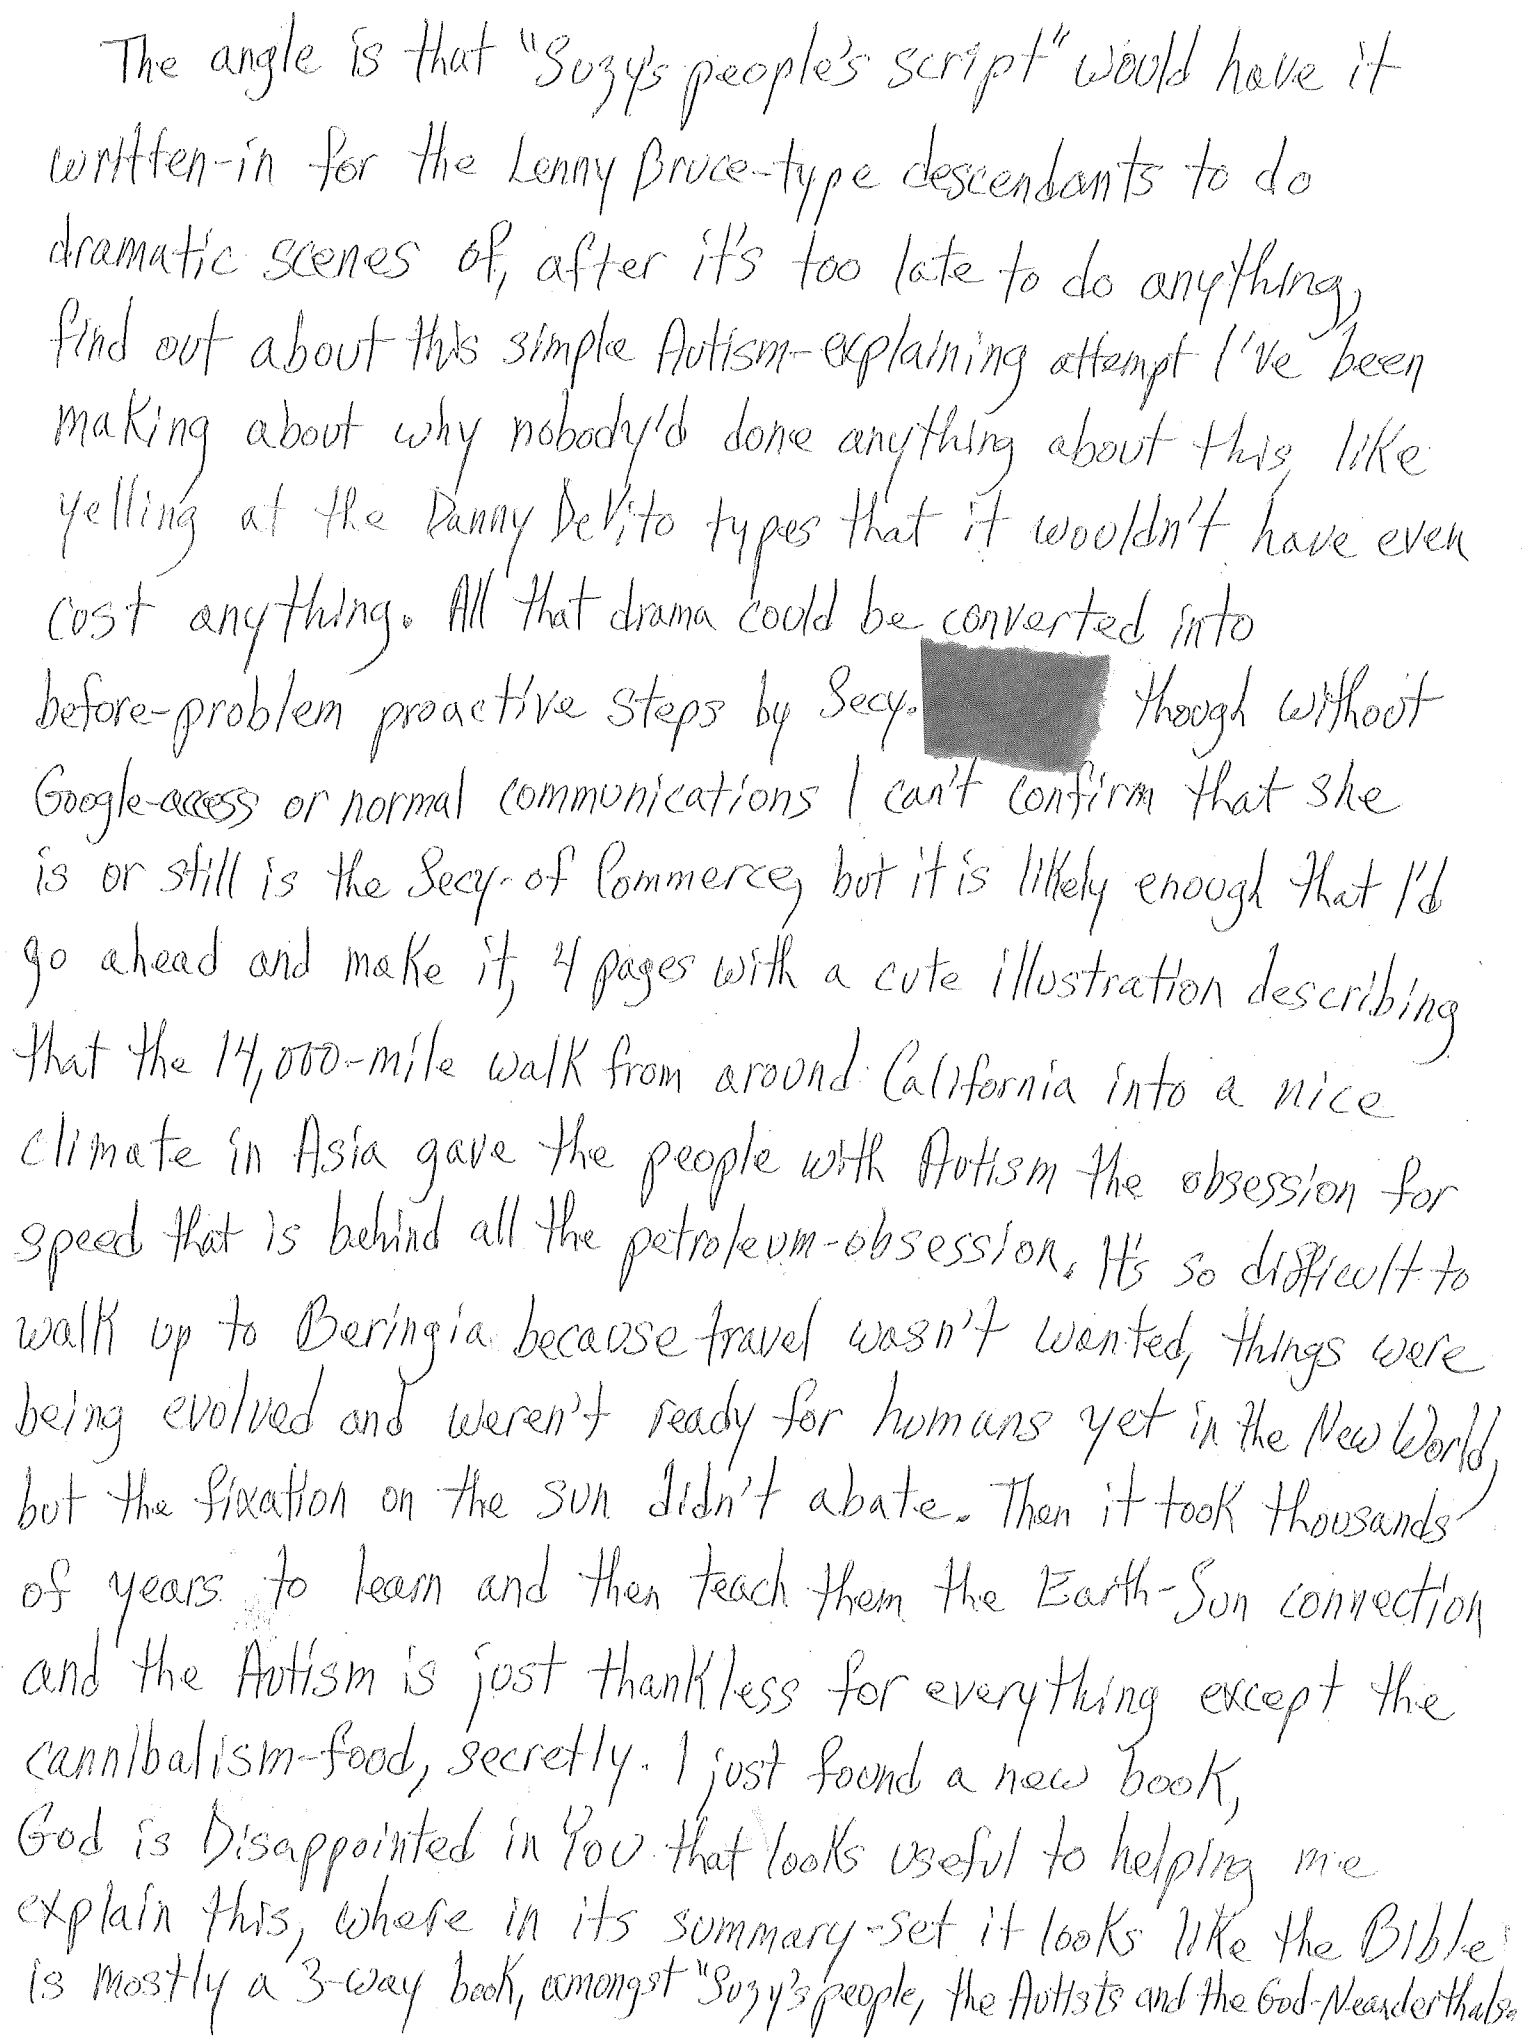 The angle is that "Suzy's people's script" would have it
written-in for the Lenny Bruce-type descendants to do
dramatic scenes of, after it's too late to do anything,
find out about this simple Autism-explaining attempt I've been
making about why nobody'd done anything about this, like
yelling at the Danny DeVito types that it wouldn't have even
cost anything. All that drama could be converted into
before-problem proactive steps by Secy. though without
Google-access or normal communications I can't confirm that she
is or still is the Secy. of Commerce, but it is likely enough that I'd
go ahead and make it, 4 pages with a cute illustration describing
that the 14,000-mile walk from around California into a nice
climate in Asia gave the people with Autism the obsession for
speed that is behind all the petroleum-obsession. It's so difficult to
walk up to Beringia because travel wasn't wanted, things were
being evolved and weren't ready for humans yet in the New World,
but the fixation on the sun didn't abate. Then it took thousands
of years to learn and then teach them the Earth-Sun connection
and the Autism is just thankless for everything except the
cannibalism-food, secretly. I just found a new book,
God is Disappointed in You that looks useful to helping me
explain this, where in its summary-set it looks like the Bible
is mostly a 3-way book, amongst "Suzy's people, the Autists and the God-Neanderthals.